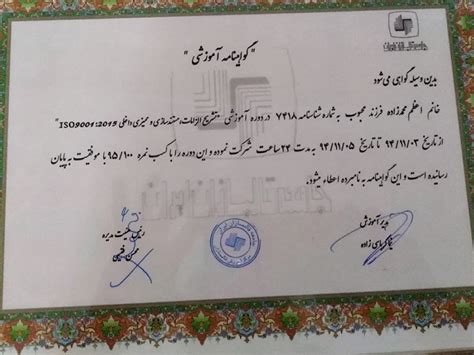 "گواهینامه آموزشی"
بدین وسیله گواهی می‌شود
خانم اعظم محمدزاده فرزند محبوب به شماره شناسنامه ۷۴۱۸ در دوره آموزشی "تشریح الزامات، مستندسازی و ممیزی داخلی ISO9001:2015"
از تاریخ ۹۴/۱۱/۰۳ تا تاریخ ۹۴/۱۱/۰۵ به مدت ۲۴ ساعت شرکت نموده و این دوره را با کسب نمره ۹۵/۱۰۰ با موفقیت به پایان
رسانیده است و این گواهینامه به نامبرده اعطاء میشود.
مدیر آموزش
رئیس هیئت مدیره
محسن